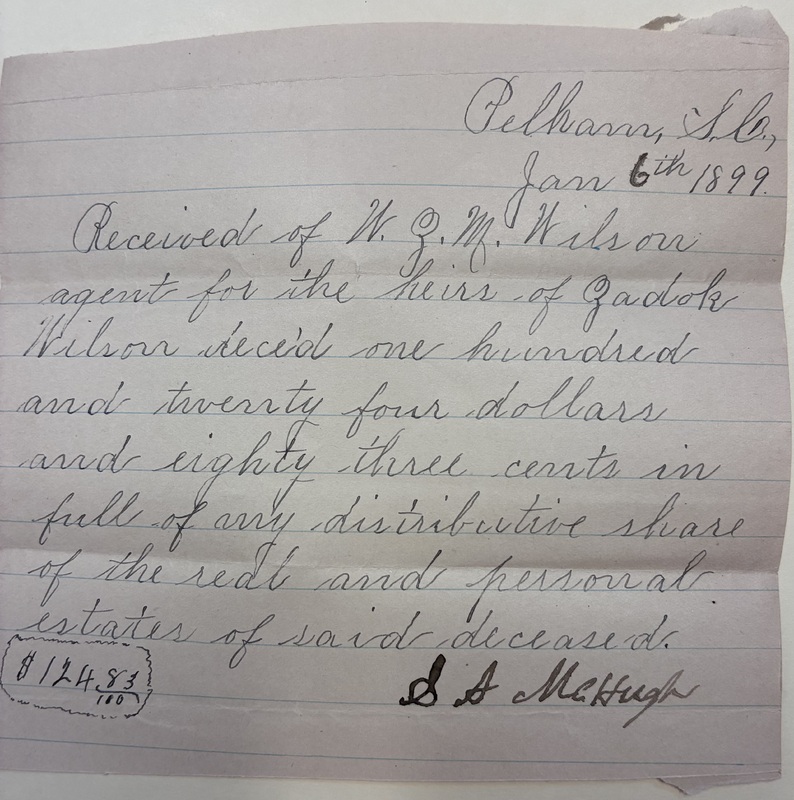 Pelham, S.C.,
Jan 6th 1899.
Received of W. Z. M. Wilson
agent for the heirs of Zadok
Wilson dece'd one hundred
and twenty four dollars
and eighty three cents in
full of my distributive share
of the real and personal
estates of said deceased.
$124 83/100
S A McHugh